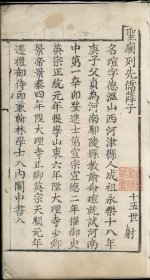 聖廟列先儒薛子 十五世 射
名瑄字德溫山西河津縣人成祖永樂十八年
庚子父貞為河南鄢陵縣教諭侖瑄就試河南
中第一辛丑登進士第宣宗宣德二年擢御史
英宗正統元年提學山東六年陞大理寺少卿
景帝景泰四年陞大理寺正卿英宗天順元年
遷禮部侍郎兼翰林學士入內閣中書八